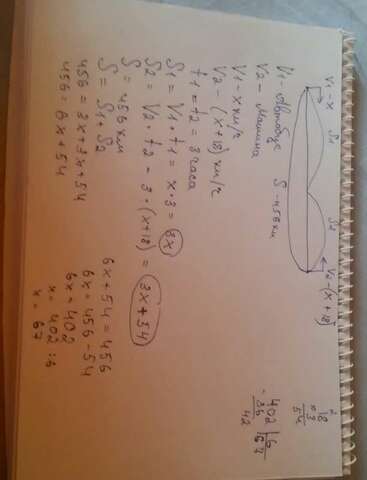 V1-x S1 S2 V2-(x+18)
S-456км
V1-Автобус
V2- Машина
V1-x км/г
V2-(x+18) км/г
t1=t2=3 часа
S1= V1·t1 = x·3 = 3x
S2= V2·t2 - 3·(x+18) = 3x+54
S= 456 км
S= S1+S2
456 = 3x+3x+54
456 = 6x+54
6x+54=456
6x=456-54
6x=402
x=402:6
x=67
18
×3
54
402|6
-36|67
42